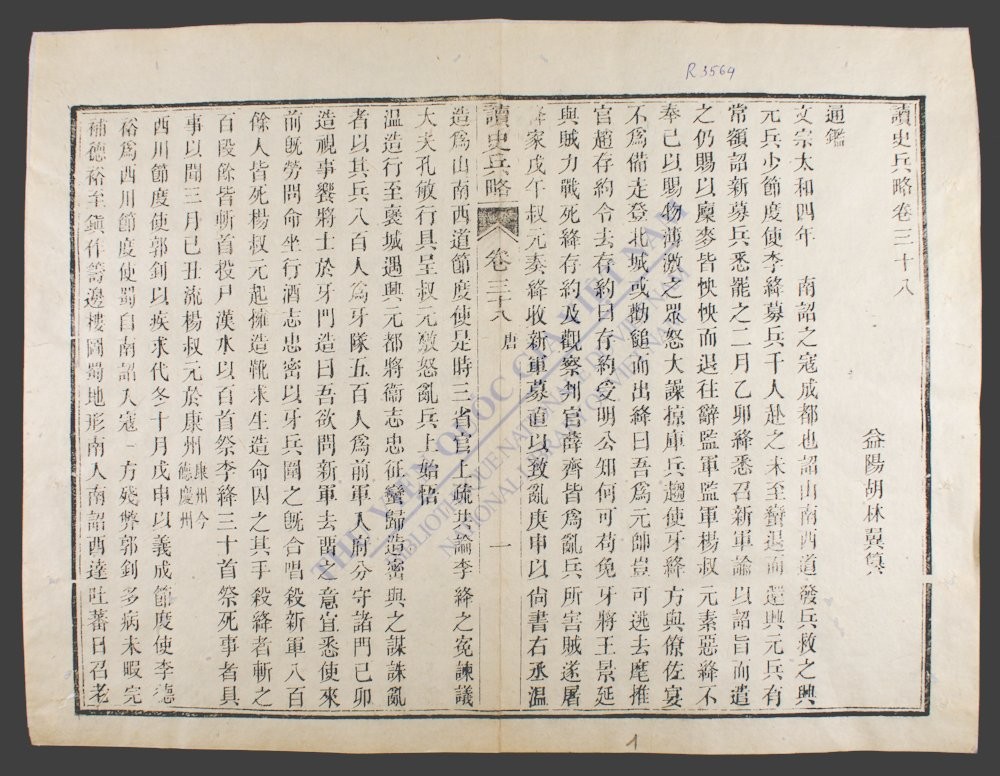 R 3569
讀史兵略卷三十八
益陽胡林翼纂
通鑑
文宗太和四年 南詔之寇成都也詔山南西道發兵救之興
元兵少節度使李絳募兵千人赴之未至蠻退而還興元兵有
常額詔新募兵悉罷之二月乙卯絳悉召新軍諭以詔旨而遣
之仍賜以廩麥皆怏怏而退往辭監軍監軍楊叔元素惡絳不
奉己以賜物薄激之眾怒大譟掠庫兵趨使牙絳方與僚佐宴
不為備走登北城或勸縋而出絳曰吾為元帥豈可逃去麾推
官趙存約令去存約曰存約受明公知何可苟免牙將王景延
與賊力戰死絳存約及觀察判官薛齊皆為亂兵所害賊遂屠
絳家戊午叔元奏絳收新軍募直以致亂庚申以尚書右丞溫
讀史兵略 卷三十八 唐 一
造為山南西道節度使是時三省官上疏共論李絳之冤諫議
大夫孔敏行具呈叔元激怒亂兵上始悟
溫造行至褒城遇興元都將衞志忠征蠻歸造密與之謀誅亂
者以其兵八百人為牙隊五百人為前軍入府分守諸門己卯
造視事饗將士於牙門造曰吾欲問新軍去留之意宜悉使來
前既勞問命坐行酒志忠密以牙兵圍之既合唱殺新軍八百
餘人皆死楊叔元起擁造靴求生造命囚之其手殺絳者斬之
百段餘皆斬首投尸漢水以百首祭李絳三十首祭死事者具
事以聞三月己丑流楊叔元於康州 康州今德慶州
西川節度使郭釗以疾求代冬十月戊申以義成節度使李德
裕為西川節度使蜀自南詔入寇一方殘弊郭釗多病未暇完
補德裕至鎮作籌邊樓圖蜀地形南入南詔西達吐蕃日召老
THƯ VIỆN QUỐC GIA VIỆT NAM
BIBLIOTHÈQUE NATIONALE DU VIETNAM
NATIONAL LIBRARY OF VIETNAM
1